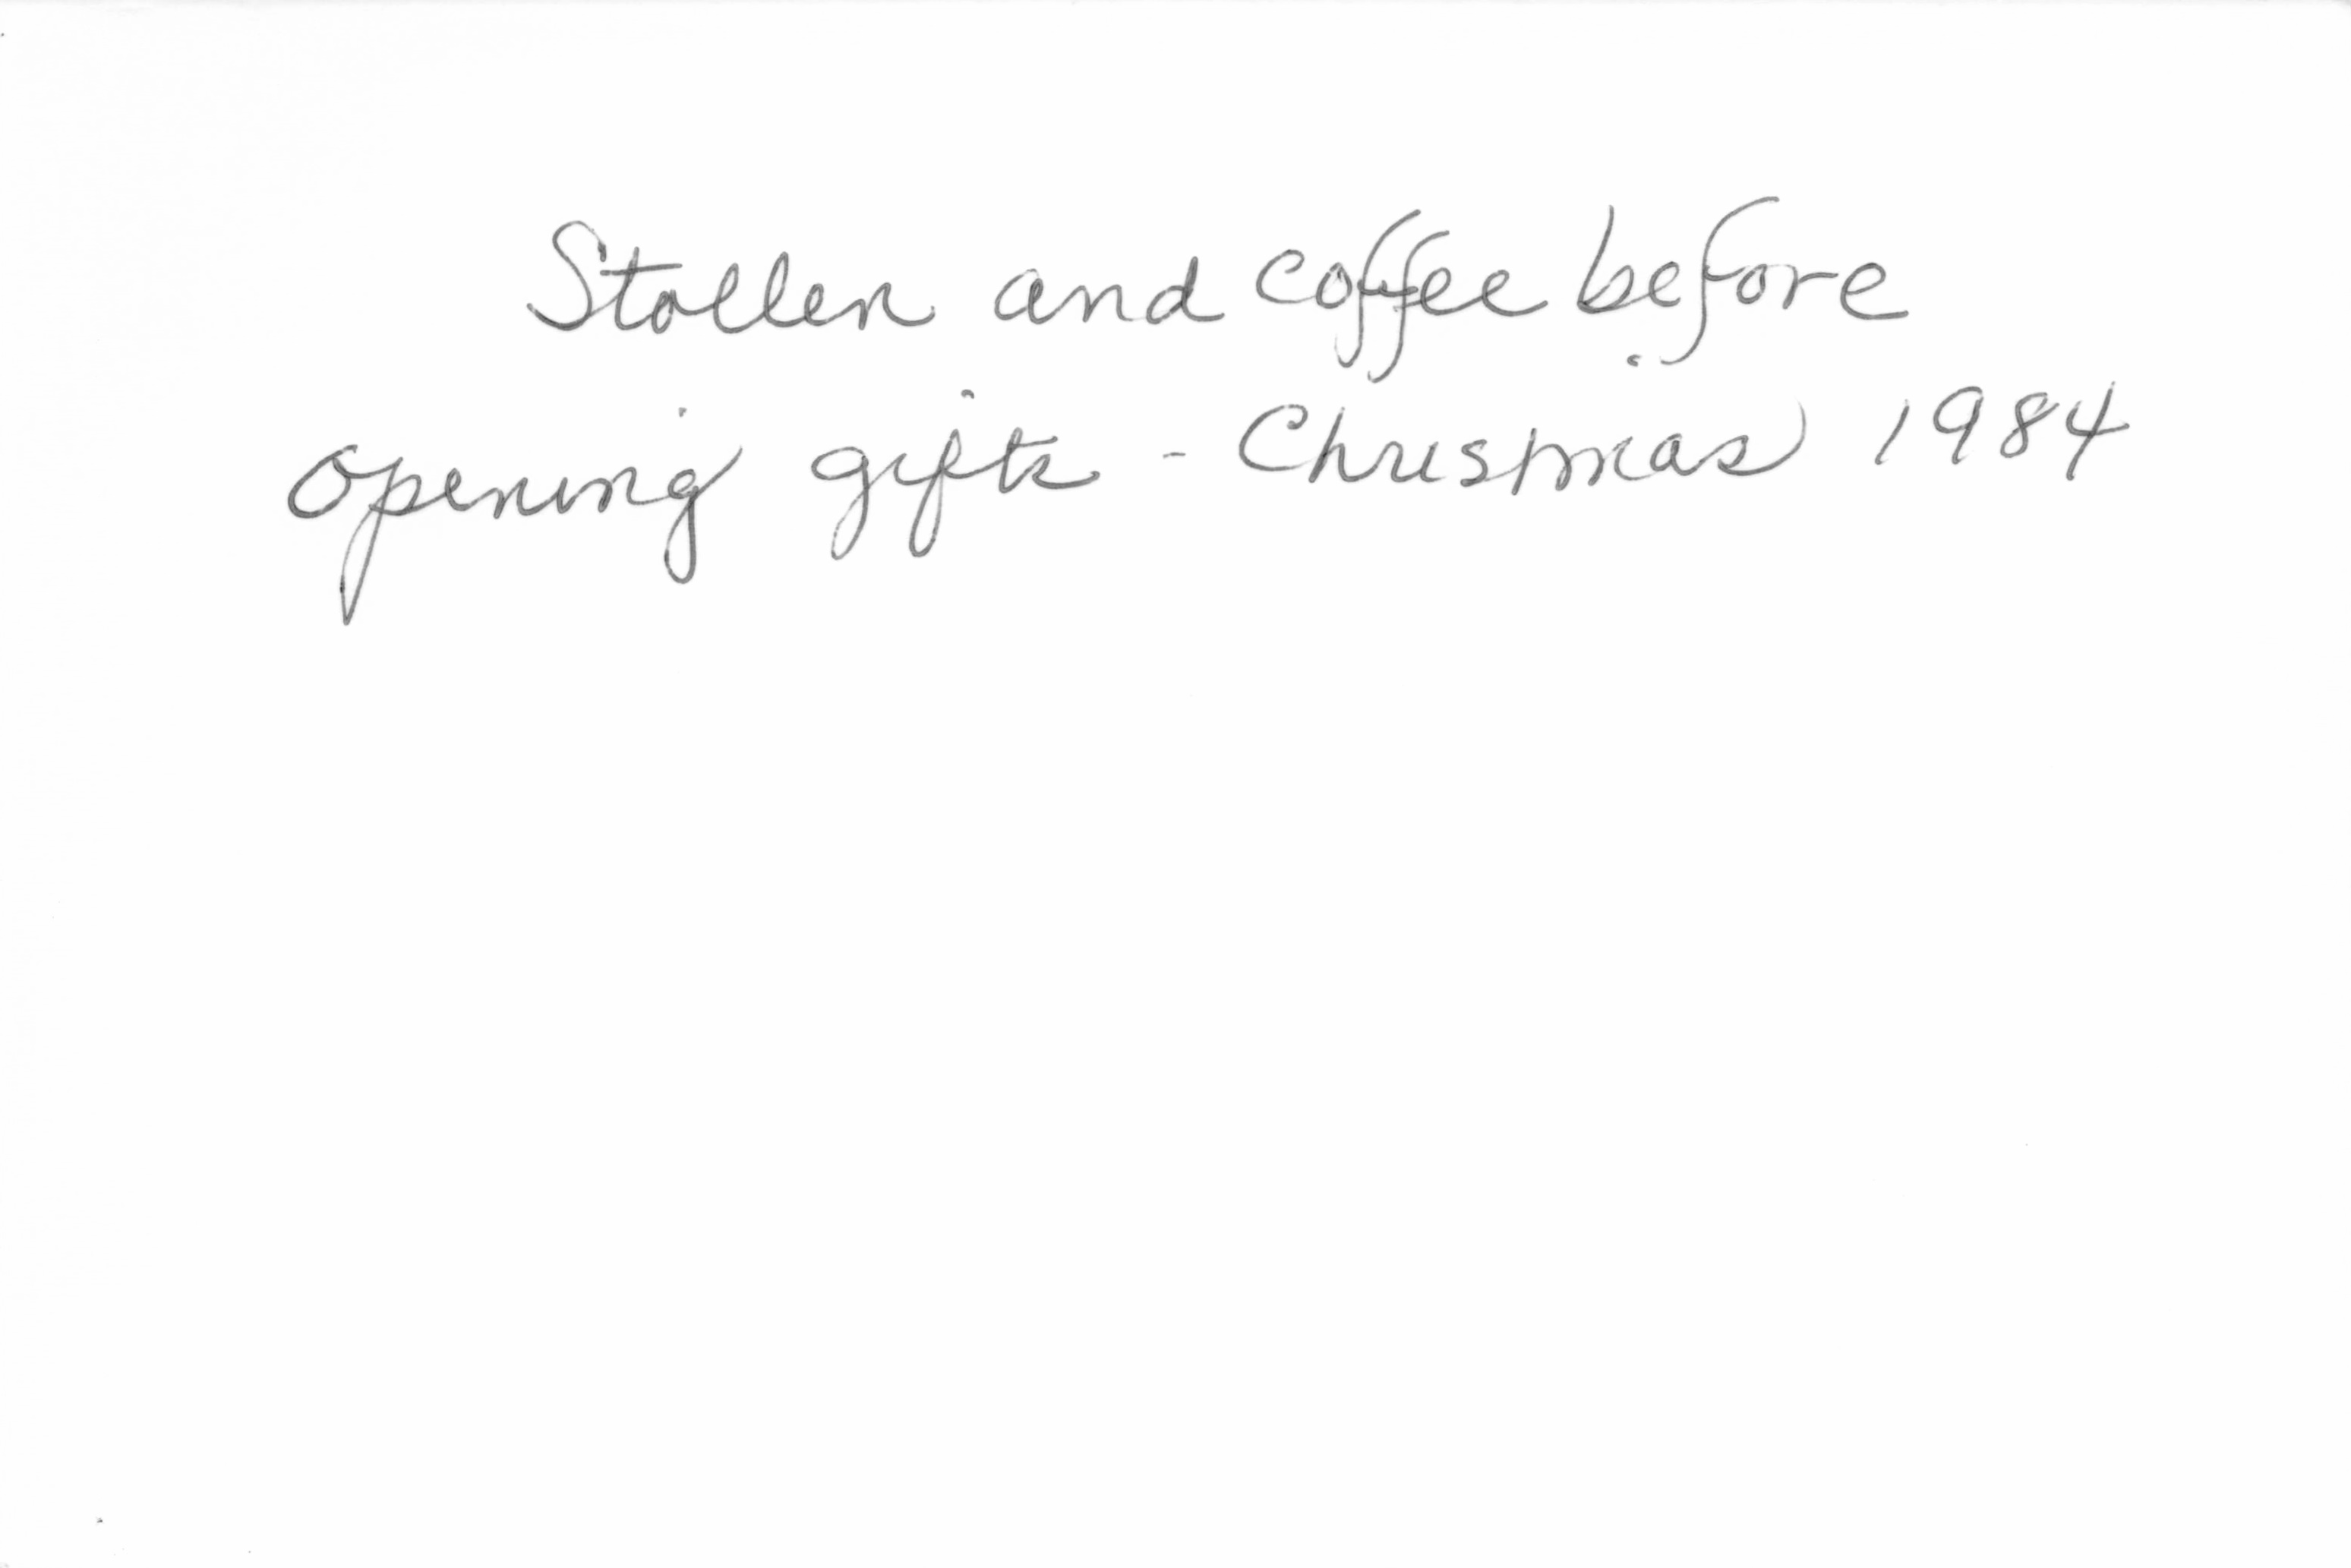 Stollen and coffee before
opening gifts - Christmas 1984